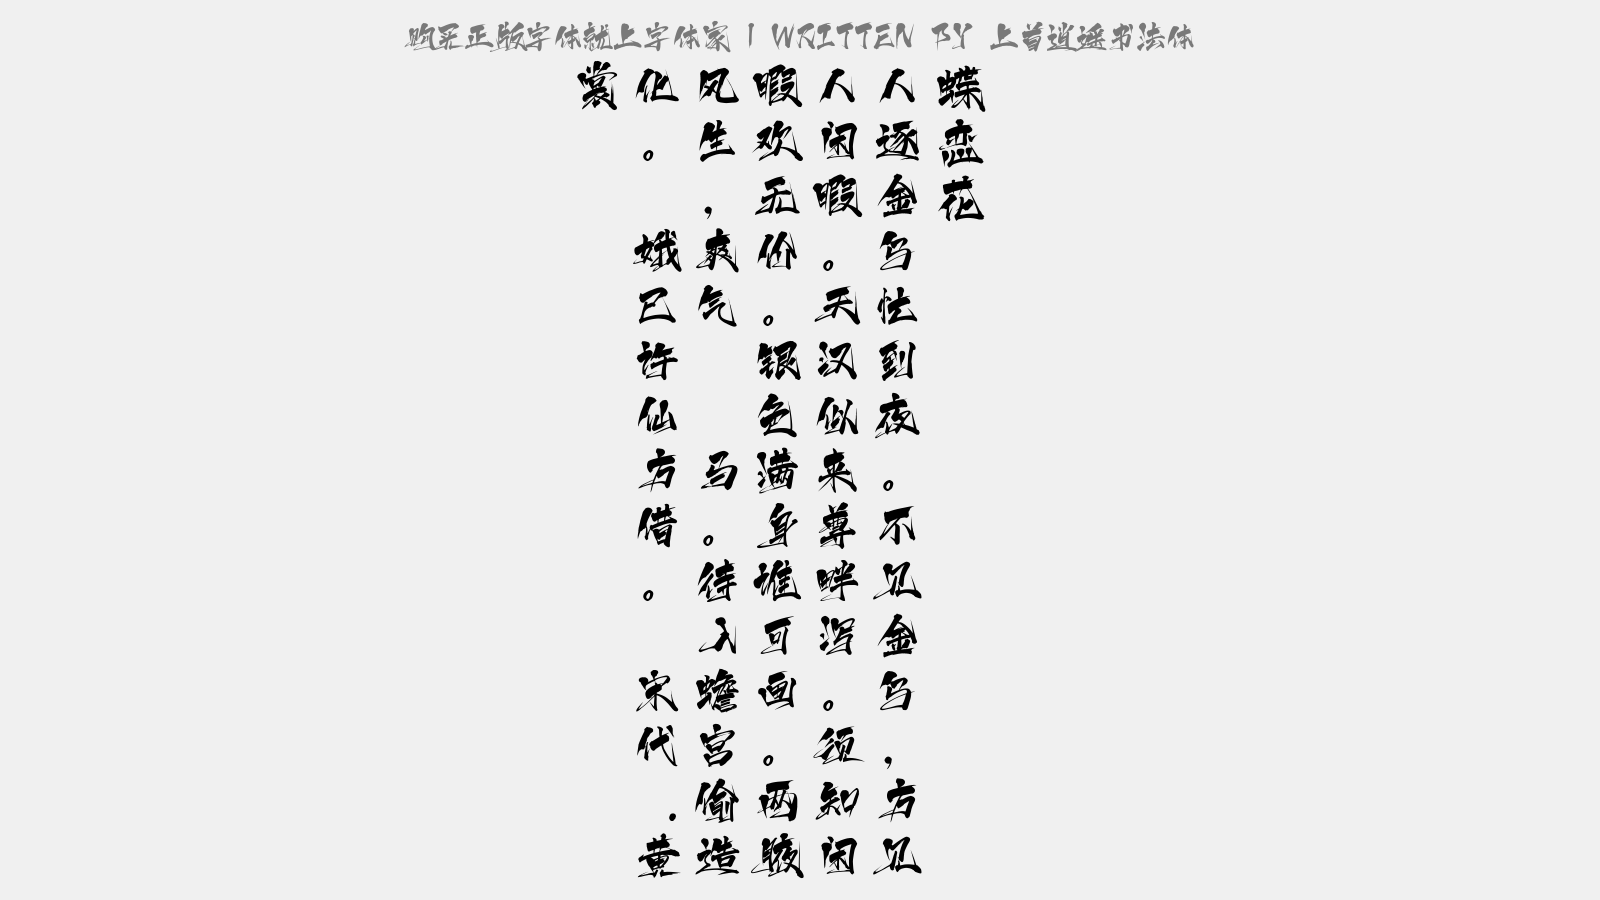 购买正版字体就上字体家 | WRITTEN BY 上首逍遥书法体
蝶恋花
人逐金乌怯到夜。不见金乌，方见
人闲暇。天汉似来尊畔泻。须知闲
暇欢无价。银色满身谁可画。两腋
风生，爽气　　马。待入蟾宫偷造
化。　娥已许仙方借。　宋代.黄
裳